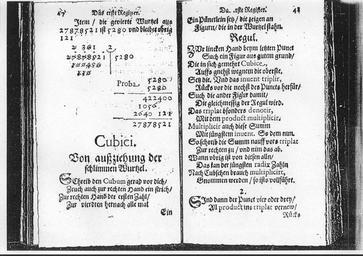 Das erste Register.
Item / die gevierte Wurtzel aus
27878521 ist 5280 und bleibt übrig
121
5280
Proba.
5280
5280
422400
1056
2640 121
27878521
Cubici.
Von außziehung der
schlimmen Wurtzel.
Schreib den Cubum gerad vor dich /
Zeuch auch zur rechten Hand ein strich /
Zur rechten Hand die ersten Zahl /
Zur vierdten hernach alle mal
Ein
Das erste Register. 43
Ein Pünctlein sey / die zeigen an
Figuren / die in der Wurtzel stahn.
Regul.
Zur lincken Hand beym letzten Punct
Such ein Figur aus gutem grund /
Die in sich gemehret Cubice,
Auffs gnehst wegnem die oberste,
Setz die. Und das invent triplir,
Rücks vor die nechst des Puncts herfür /
Such die ander Figur damit /
Die gleichmessig der Regul wird.
Das triplat
Mit dem product multiplicir,
Multiplicir auch diese Summ
Mit jüngstem invent. So dem nun.
So schreib die Summ nauff vors triplat
Zur rechten zu / und nim das ab.
Wann übrig ist von diesen alln /
Das san der jüngsten radix Zahln
Nach Cubschen brauch multiplicirt,
Gnommen werden / so ists vollführt.
2.
Sind dann der Punct vier oder drey /
All product ins triplat vernew /
Rücks